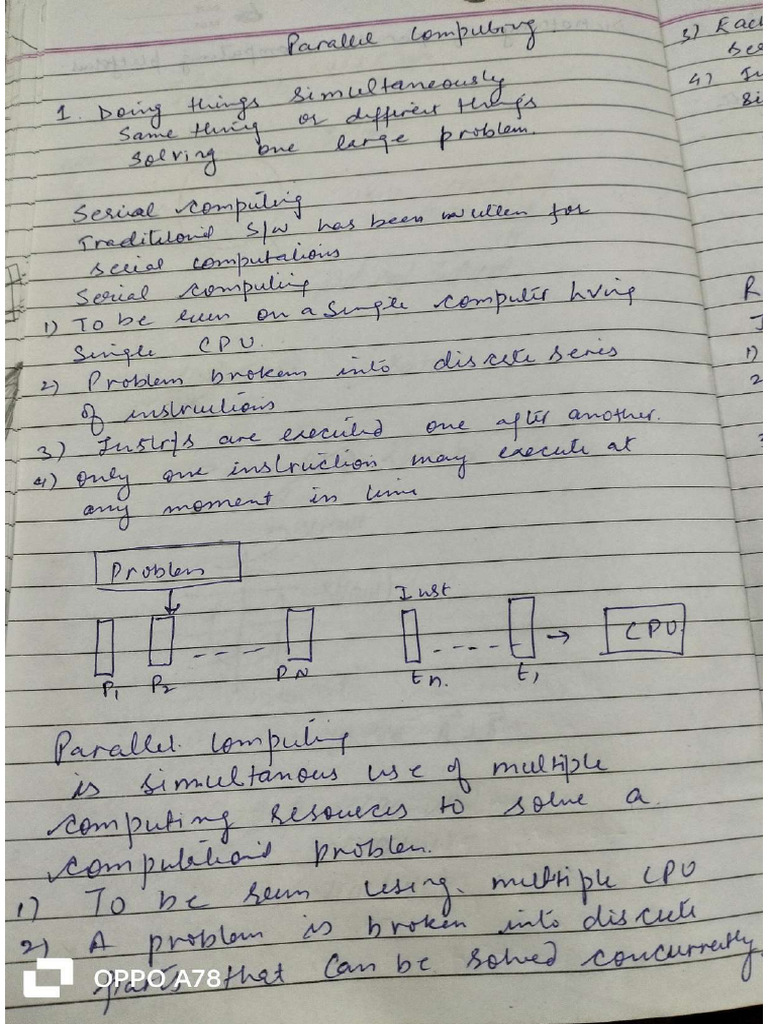 Parallel Computing.
1. Doing things simultaneously
Same thing or different things
Solving one large problem.
Serial computing
Traditilond S/W has been written for
serial computations
Serial computing
1) To be run on a single computer hving
Single CPU.
2) Problem broken into discrete series
of instructions
3) Instr/s are executed one after another.
4) only one instruction may execute at
any moment in time
Problem
Inst
CPU
P1 P2 PN tn. t1
Parallel computing
is simultanous use of multiple
computing resources to solve a
computationd problem.
1) To be run using multiple CPU
2) A problem is broken into discrete
parts that can be solved concurrently
3) Eac
4) In
Si
R
1)
2
OPPO A78